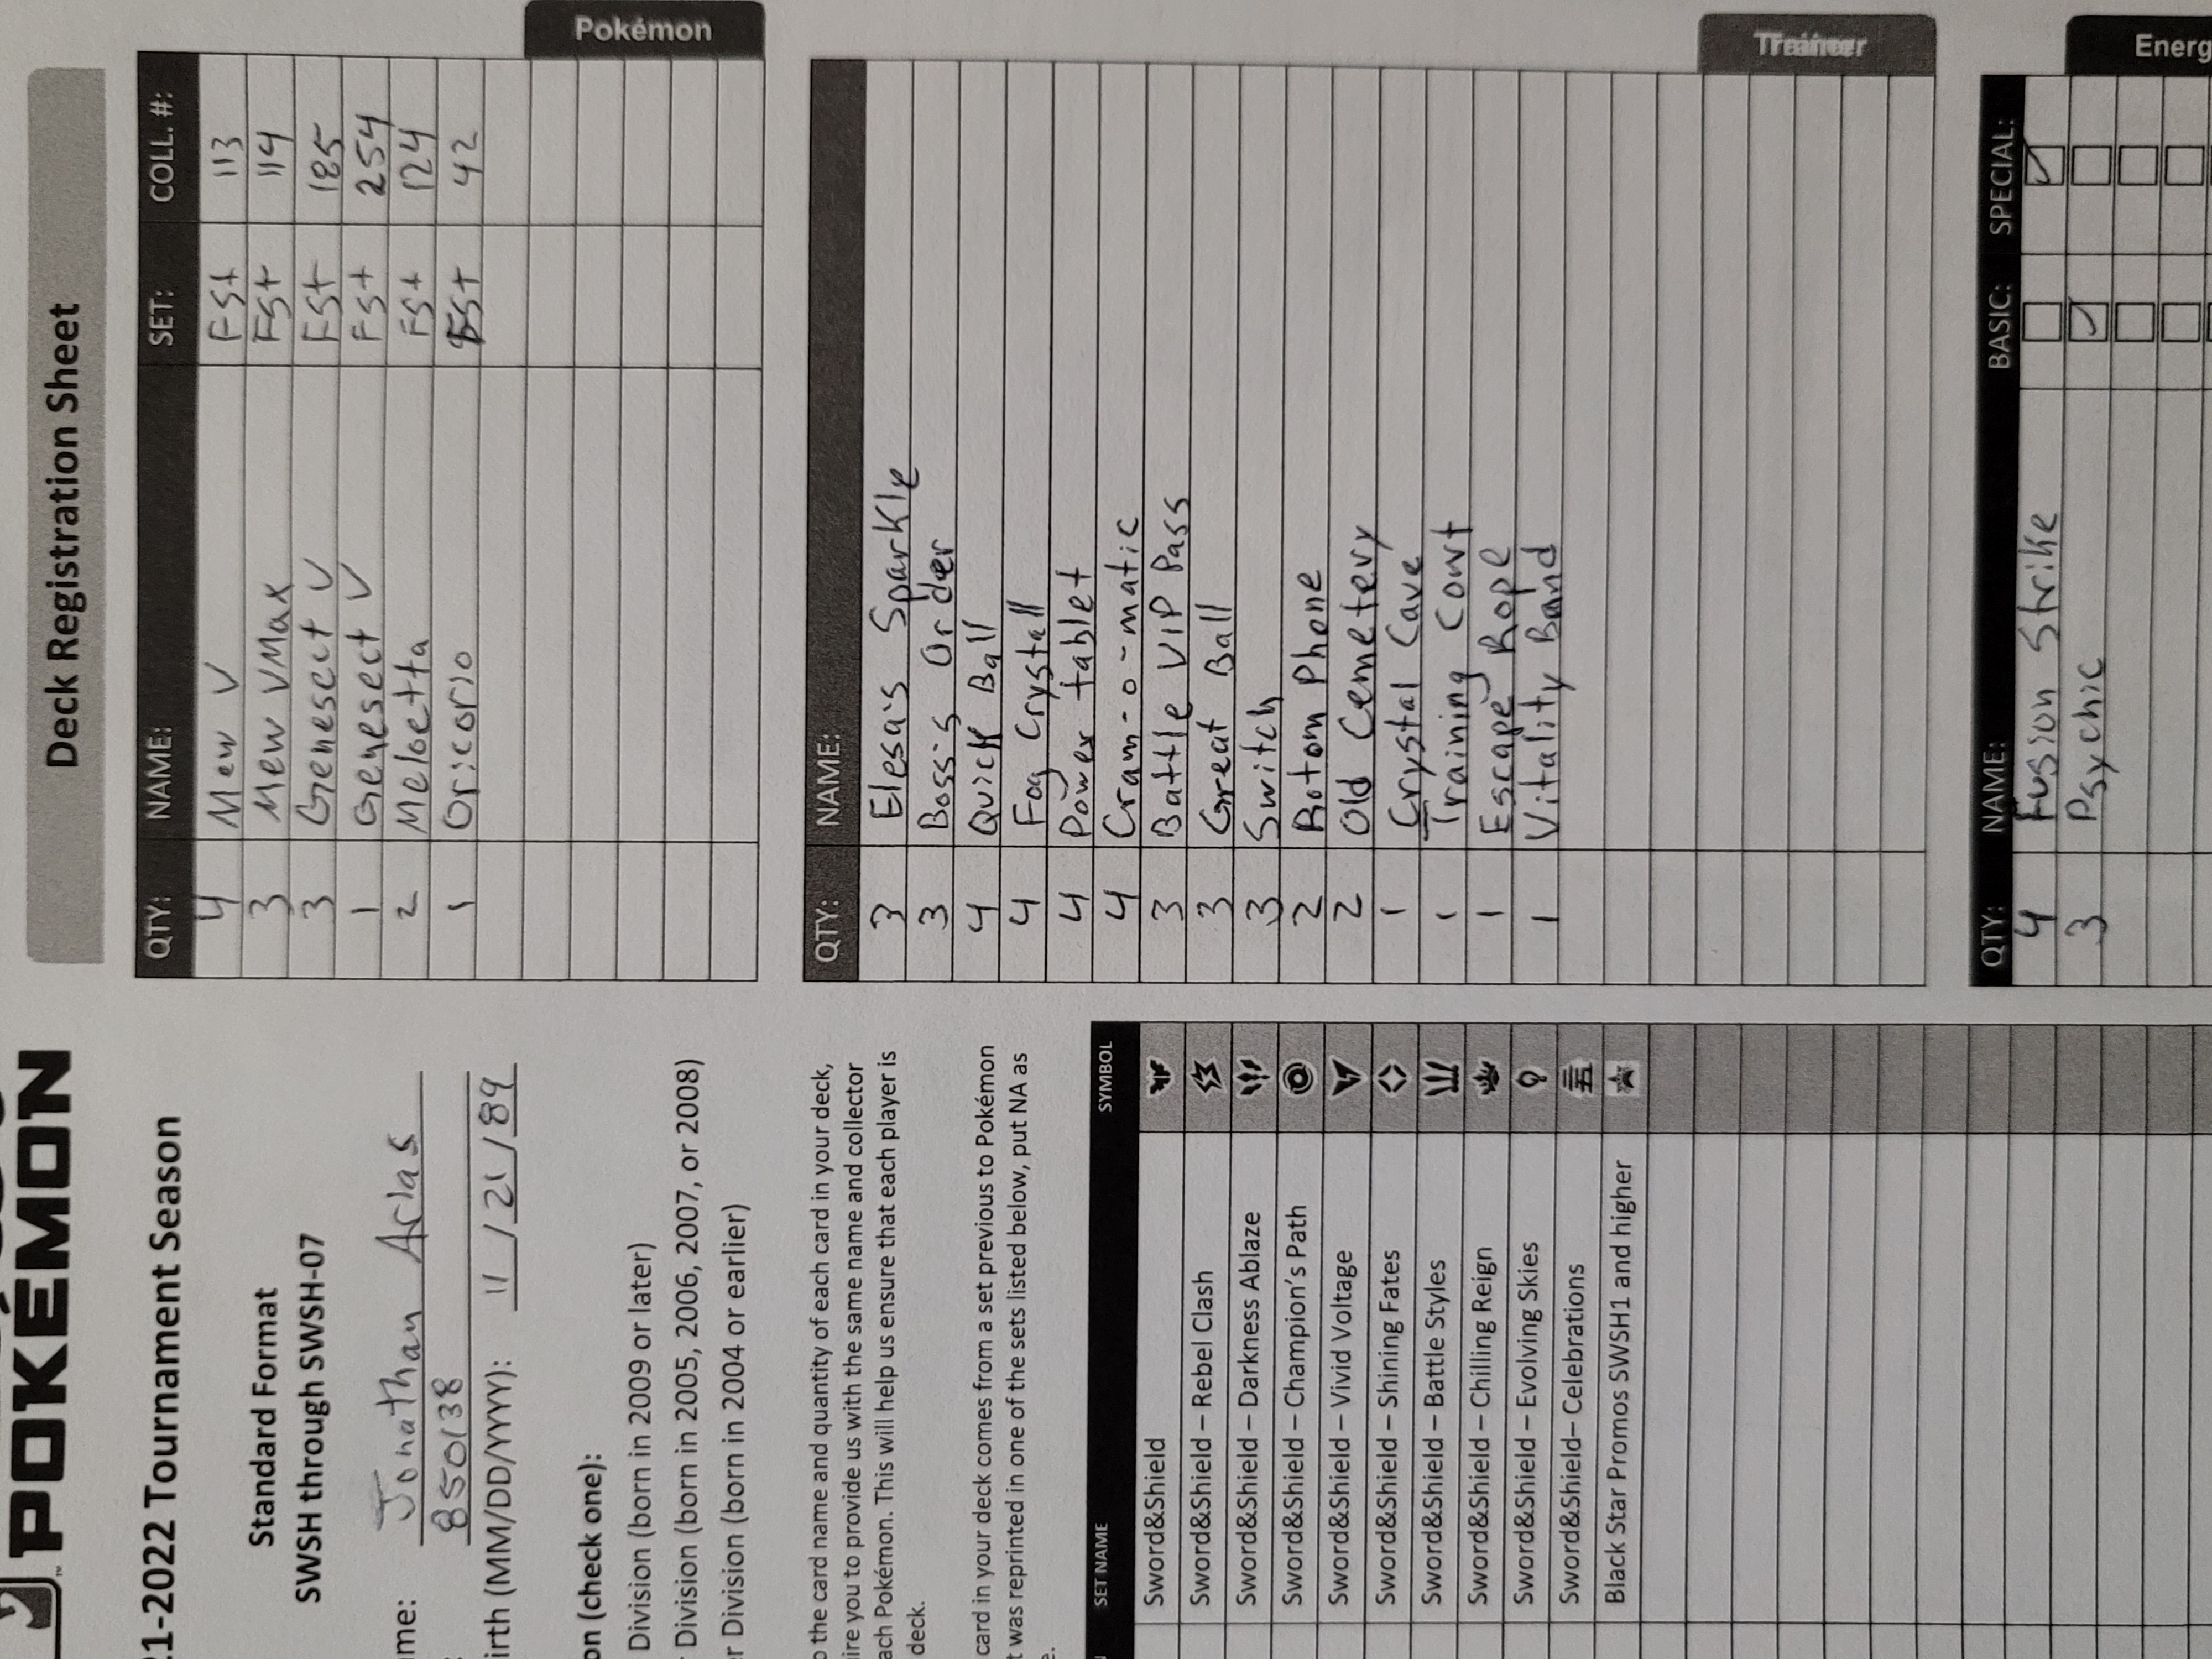 POKÉMON
Deck Registration Sheet
21-2022 Tournament Season
Standard Format
SWSH through SWSH-07
me: Jonathan Arias
: 850138
irth (MM/DD/YYYY): 11 / 21 / 89
on (check one):
Division (born in 2009 or later)
r Division (born in 2005, 2006, 2007, or 2008)
er Division (born in 2004 or earlier)
o the card name and quantity of each card in your deck,
ire you to provide us with the same name and collector
ach Pokémon. This will help us ensure that each player is
deck.
card in your deck comes from a set previous to Pokémon
t was reprinted in one of the sets listed below, put NA as
e.
SET NAME SYMBOL
Sword&Shield
Sword&Shield – Rebel Clash
Sword&Shield – Darkness Ablaze
Sword&Shield – Champion's Path
Sword&Shield – Vivid Voltage
Sword&Shield – Shining Fates
Sword&Shield – Battle Styles
Sword&Shield – Chilling Reign
Sword&Shield – Evolving Skies
Sword&Shield– Celebrations
Black Star Promos SWSH1 and higher
QTY: NAME: SET: COLL. #:
4 Mew V FSt 113
3 Mew VMax FSt 114
3 Genesect V FSt 185
1 Genesect V FSt 254
2 Meloetta FSt 124
1 Oricorio FSt 42
Pokémon
QTY: NAME:
3 Elesa's Sparkle
3 Boss's Order
4 Quick Ball
4 Fog Crystall
4 Power tablet
4 Cram-o-matic
3 Battle VIP Pass
3 Great Ball
3 Switch
2 Rotom Phone
2 Old Cemetery
1 Crystal Cave
1 Training Court
1 Escape Rope
1 Vitality Band
Trainer
QTY: NAME: BASIC: SPECIAL:
4 Fusion Strike
3 Psychic
Energ